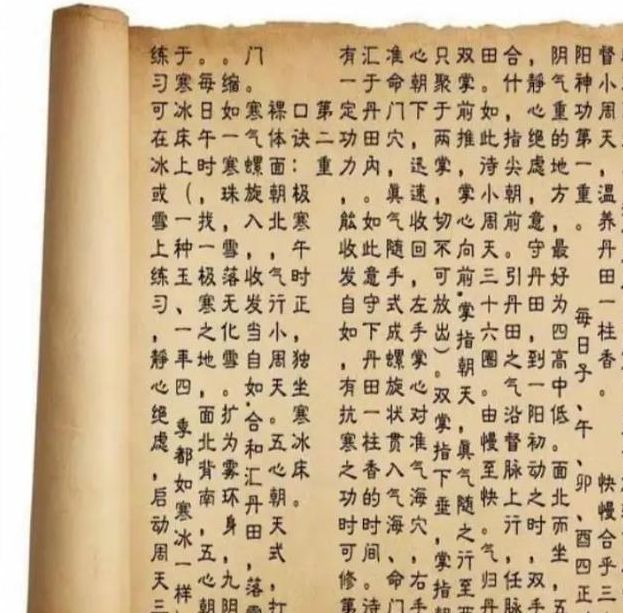 督小周天，温养丹田一柱香。快慢合乎三
阳神功第一重。每日子、午、卯、酉四正
阴气重的地方，最好为四高中低。面北而坐，五
，静心绝虑，意守丹田，到一阳初动之时，双手
合什，指尖朝前。引丹田之气沿督脉上行，任脉
田。如此诗小周天三十六圈。由慢至快。气归丹
双掌前推，掌心向前，掌指朝天，真气随之行至
只聚于两掌，切不可放出）。双掌指下垂，掌指
心朝下，迅速收回，左手掌心对准气海穴，右手
准命门穴，真气随手式成螺旋状贯入气海、命门
汇于丹田内。如此意守下丹田一柱香的时间。诗
有一定功力，能收发自如，有抗寒之功时可修第
第二重
口诀：极寒午时正，独坐寒冰床。
裸体面朝北，气行小周天。五心朝天式，打
门。寒气螺旋入，收发当自如，合和汇丹田，落雪
。缩如一寒珠，雪落无化雪。扩为雾环身，九阴
。每日午时，找一极寒之地，面北背南，五心朝
于寒冰床上（一种玉、一年四季都如寒冰一样
练习可在冰或雪上练习，静心绝虑，启动周天三